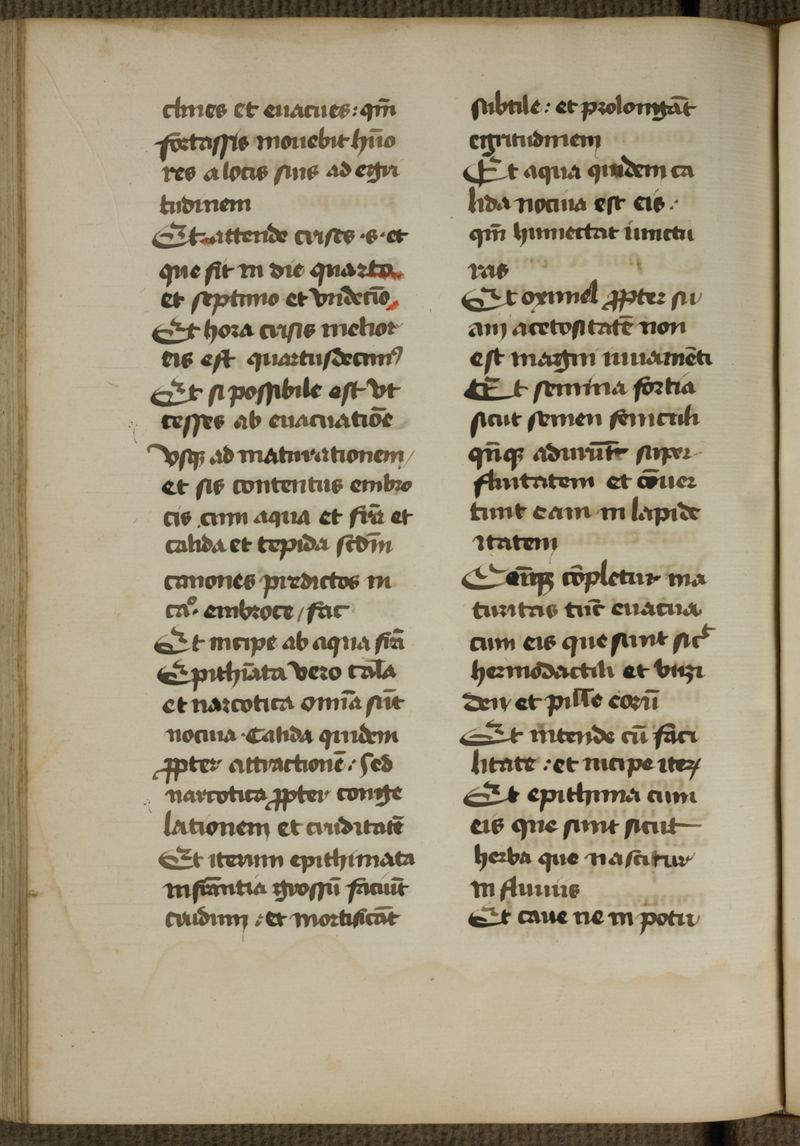 clines et euacues: qm̄
fortassis mouebit hūo
res a locis suis ad egri
tudinem
Et attende crises .s. et
que fit in die quarto
et septimo et vndecīo
Et hora crisis melior
eis est quartusdecimꝰ
Et si possibile est vt
cesses ab euacuatiōe
vsqꝫ ad maturationem
et sis contentus embro
cis cum aqua et fīa et
calida et tepida scd̄m
canones predictos in
caº. embroce / fac
Et incipe ab aqua fīa
Epithīata vero cal̄a
et narcotica omīa sūt
nociua. Calida quidem
ꝓpter attractionē: Sed
narcotica ꝓpter conge
lationem et cruditatē
Et iterum epithimata
infāntia grossū faciūt
crudum: et mortificāt
subtile: et prolongāt
egritudinem
Et aqua quidem ca
lida nociua est eis:
qm̄ humectat iunctu
ras
Et oximel ꝓpter su
am acetositatē non
est magni iuuamēti
Et semina fortia
sicut semen feniculi
qn̄qꝫ adurūt super
fluitatem et cōuer
tunt eam in lapide
itatem
Cunqꝫ cōpletur ma
turitas tūc euacua
cum eis que sunt sic̄
hermodactili et buzi
den et pill̄e eorū
Et intende cū faci
litate: et incipe iteꝝ
Et epithima cum
eis que sunt sicut
herba que nascitur
in fluuiis
Et caue ne in potu